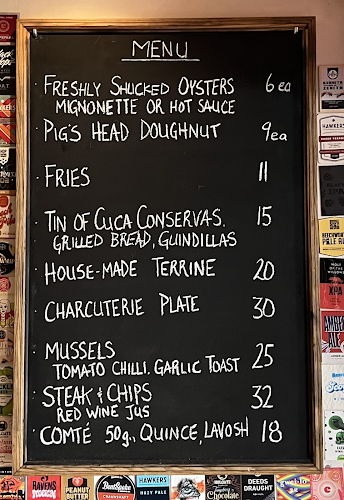 MENU
FRESHLY SHUCKED OYSTERS 6ea
MIGNONETTE OR HOT SAUCE
PIG'S HEAD DOUGHNUT 9ea
FRIES 11
TIN OF CUCA CONSERVAS. 15
GRILLED BREAD, GUINDILLAS
HOUSE-MADE TERRINE 20
CHARCUTERIE PLATE 30
MUSSELS 25
TOMATO CHILLI. GARLIC TOAST
STEAK & CHIPS 32
RED WINE JUS
COMTÉ 50g., QUINCE, LAVOSH 18
HAWKERS
BEECHWORTH
PALE ALE
XPA
AMBER
ALE
RAVENS
PEANUT
BUTTER
HAWKERS
HAZY PALE
Chocolate
DEEDS
DRAUGHT